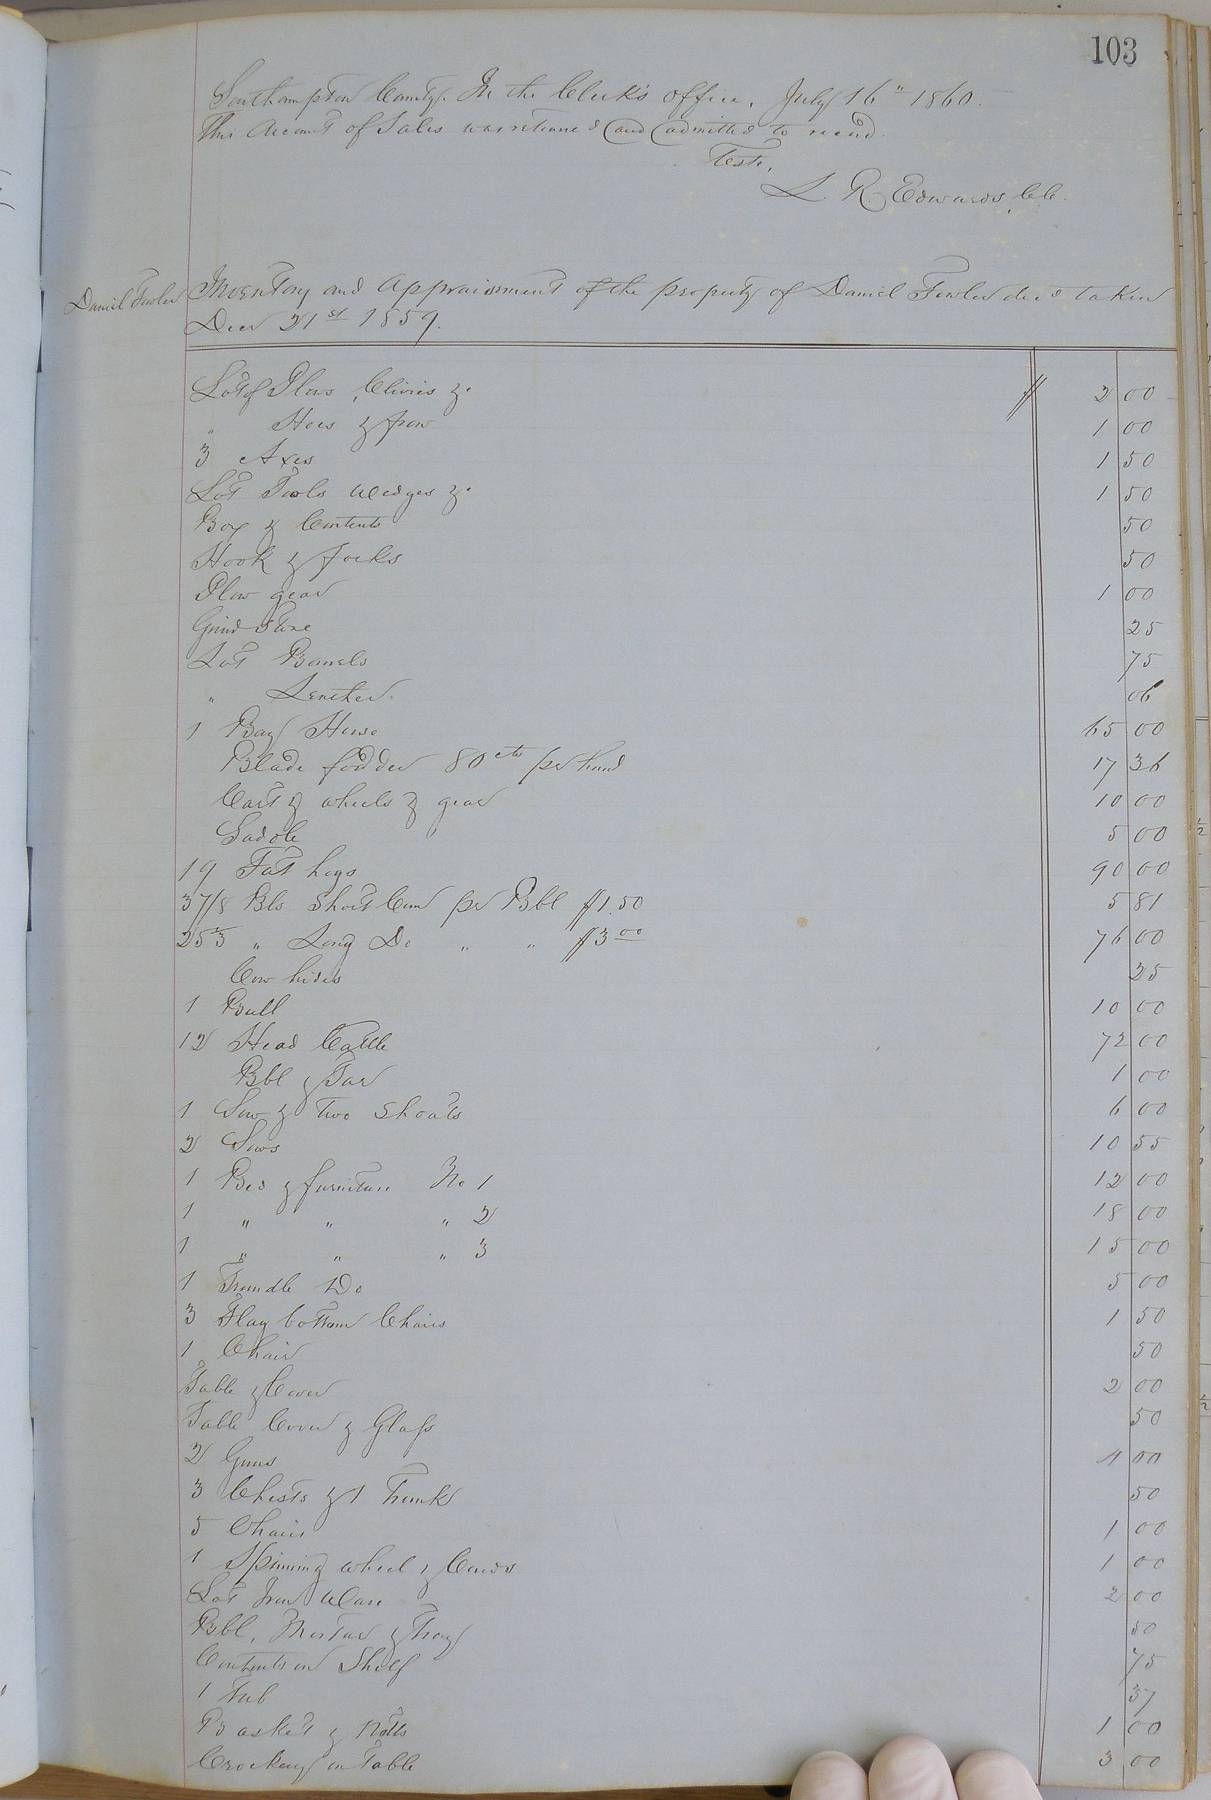 103
Southampton County. In the Clerk's office, July 16" 1860.
This Account of Sales was returned and admitted to record.
Teste,
L. R. Edwards, CC.
Daniel Fowler
Inventory and Appraisement of the property of Daniel Fowler decd taken
Decr 21st 1859.
Lot of Plows, Clivies &. $ 2 00
" Hoes & frow 1 00
3 Axes 1 50
Lot Tools Wedges &. 1 50
Box & Contents 50
Hook & forks 50
Plow gear 1 00
Grind Stone 25
Lot Barrels 75
" Leather. 06
1 Bay Horse 65 00
Blade fodder 80cts per hund 17 36
Cart & wheels & gear 10 00
Saddle 5 00
19 Fat hogs 90 00
3 7/8 Bls Short Corn per Bbl $1.50 5 81
25 " Long Do " " $3 00 76 00
Cow hides 25
1 Bull 10 00
12 Head Cattle 72 00
Bbl & Tar 1 00
1 Sow & two Shoats 6 00
2 Sows 10 55
1 Bed & furniture No 1 12 00
1 " " " 2 18 00
1 " " " 3 15 00
1 Trundle Do 5 00
3 Flag bottom Chairs 1 50
1 Chair 50
Table & Cover 2 00
Table Cover & Glass 50
2 Guns 4 00
3 Chests & 1 Trunk 50
5 Chairs 1 00
1 Spinning wheel & Cards 1 00
Lot Iron Ware 2 00
Bbl, Mortar & Tray 50
Contents on Shelf 75
1 Tub 37
Basket & Notts 1 00
Crockery on Table 3 00